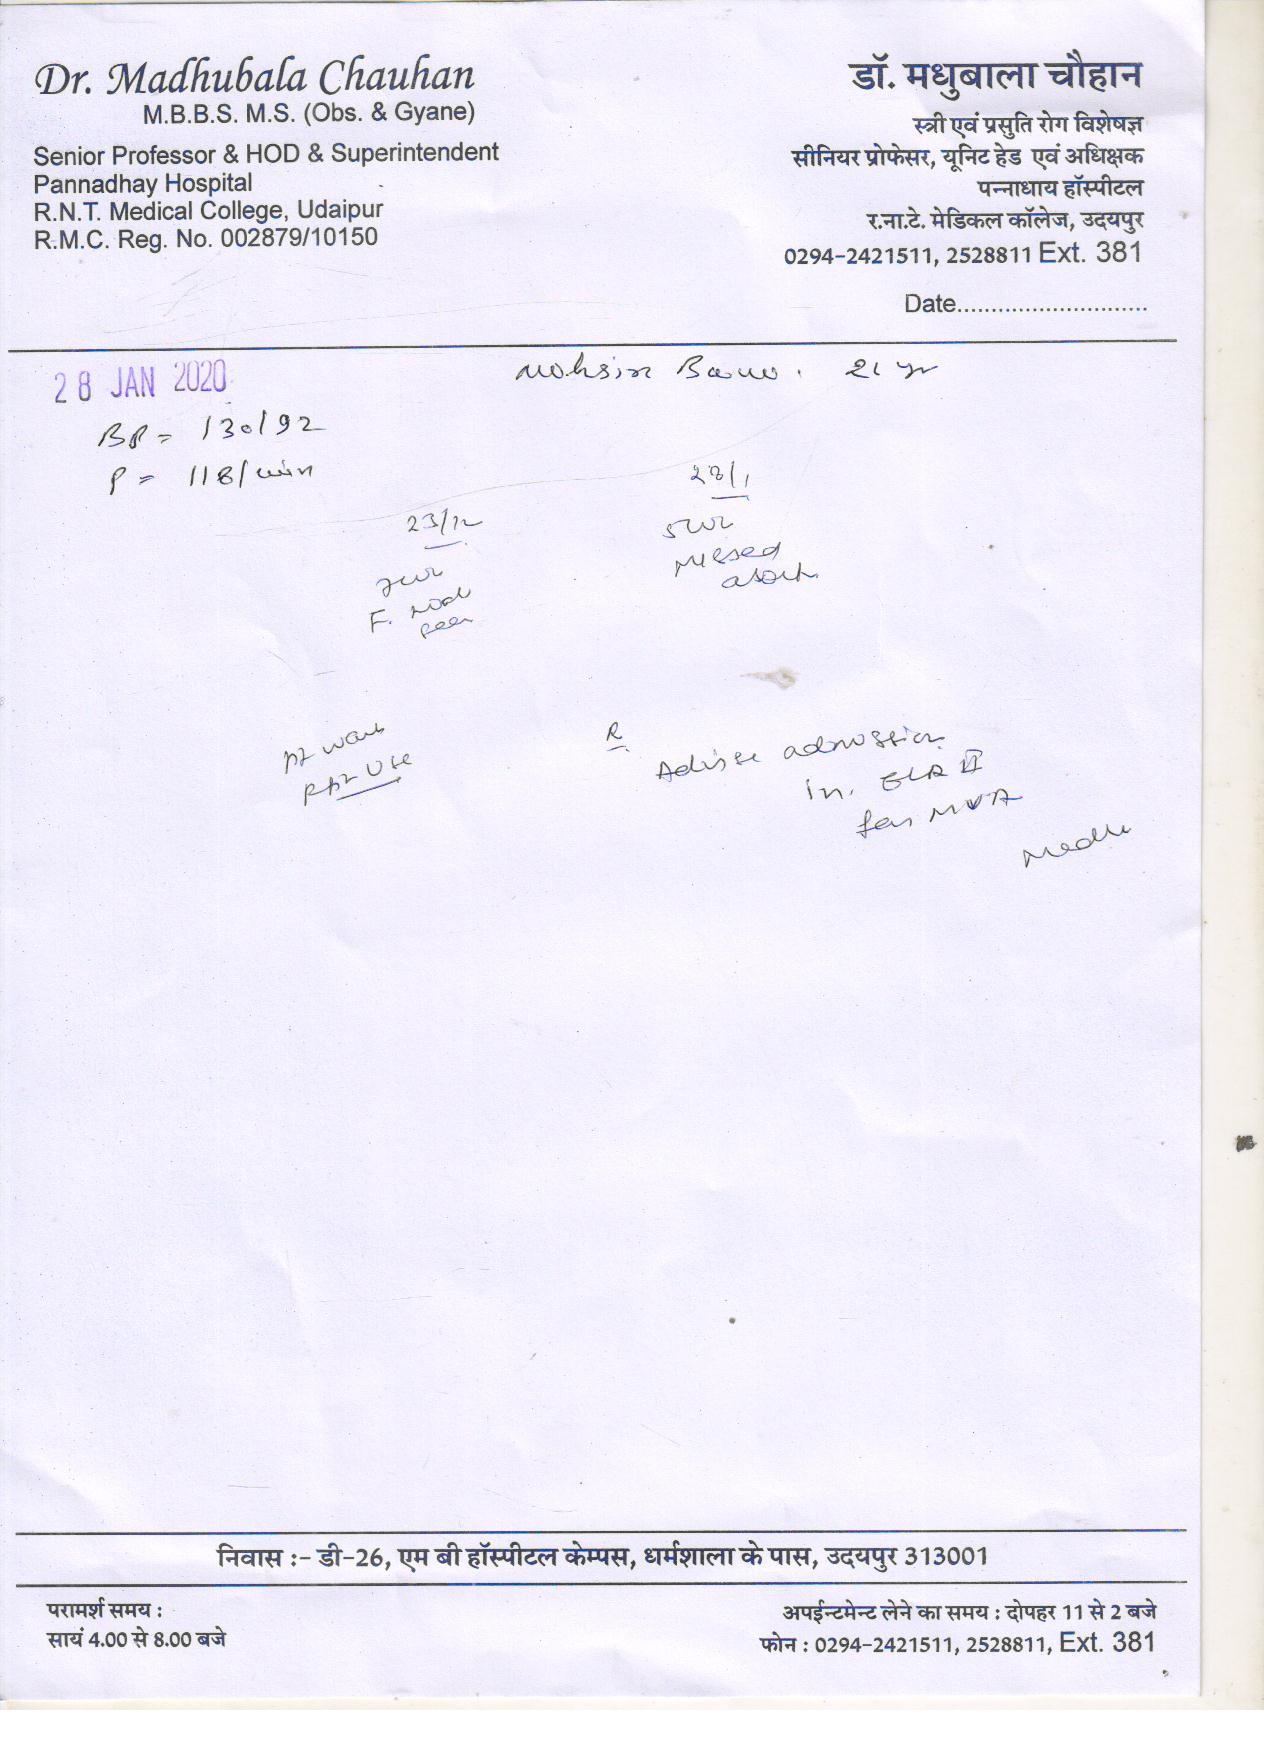 Dr. Madhubala Chauhan
M.B.B.S. M.S. (Obs. & Gyane)
Senior Professor & HOD & Superintendent
Pannadhay Hospital
R.N.T. Medical College, Udaipur
R.M.C. Reg. No. 002879/10150
डॉ. मधुबाला चौहान
स्त्री एवं प्रसुति रोग विशेषज्ञ
सीनियर प्रोफेसर, यूनिट हेड एवं अधिक्षक
पन्नाधाय हॉस्पीटल
र.ना.टे. मेडिकल कॉलेज, उदयपुर
0294-2421511, 2528811 Ext. 381
Date............................
28 JAN 2020
Mohsin Bano. 21 yr
BP = 130/92
P = 118/min
23/12
F. nod
seen
28/1
Missed
abort
pt want
rpt USG
R
Advise admission
in
for MVA
Madhu
निवास :- डी-26, एम बी हॉस्पीटल केम्पस, धर्मशाला के पास, उदयपुर 313001
परामर्श समय :
सायं 4.00 से 8.00 बजे
अपईन्टमेन्ट लेने का समय : दोपहर 11 से 2 बजे
फोन : 0294-2421511, 2528811, Ext. 381